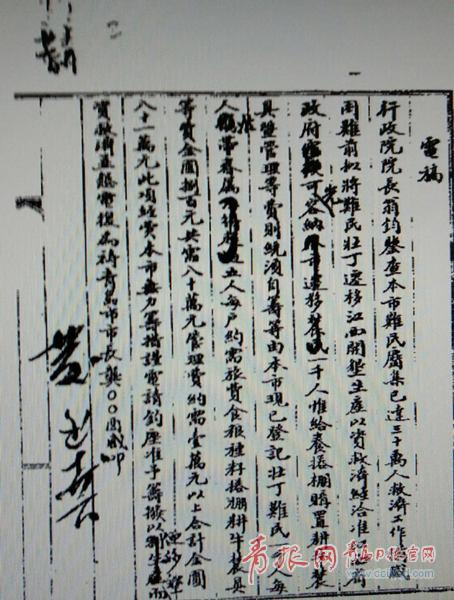 電稿
行政院院長翁鈞鑒查本市難民麕集已達三十萬人救濟工作感
困難前擬將難民壯丁遷移江西開墾生產以資救濟經洽准江西省
政府可容納市遷移一千人惟給養搭棚購置耕農
具暨管理等費則統須自籌等由本市現已登記壯丁難民一千人每
人帶眷屬五人每戶約需旅費食糧種籽搭棚耕牛農具
等費金圓捌百元共需八十萬元管理費約需壹萬元以上合計金圓
八十一萬元此項經費本市無力籌措謹電請鈞座准予籌撥以利生產而
資救濟並懇電復為禱青島市市長龔〇〇叩
青报网
青岛日报官网